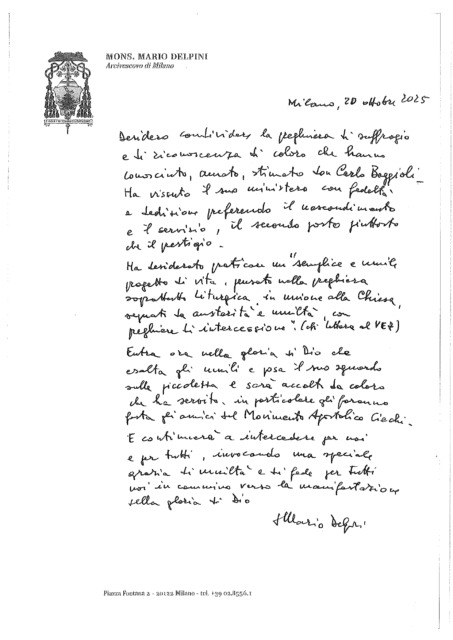 MONS. MARIO DELPINI
Arcivescovo di Milano
Milano, 20 ottobre 2025
Desidero condividere la preghiera di suffragio
e di riconoscenza di coloro che hanno
conosciuto, amato, stimato don Carlo Boggioli.
Ha vissuto il suo ministero con fedeltà
e dedizione preferendo il nascondimento
e il servizio, il secondo posto piuttosto
che il prestigio.
Ha desiderato praticare un "semplice e umile
progetto di vita, pensato nella preghiera
soprattutto liturgica, in unione alla Chiesa,
segnati da austerità e umiltà, con
preghiere di intercessione". (cfr lettera al VEZ)
Entra ora nella gloria di Dio che
esalta gli umili e posa il suo sguardo
sulla piccolezza e sarà accolto da coloro
che ha servito, in particolare gli faranno
festa gli amici del Movimento Apostolico Ciechi.
E continuerà a intercedere per noi
e per tutti, invocando una speciale
grazia di umiltà e di fede per tutti
noi in cammino verso la manifestazione
della gloria di Dio
+ Mario Delpini
Piazza Fontana 2 - 20122 Milano - tel. +39 02.8556.1